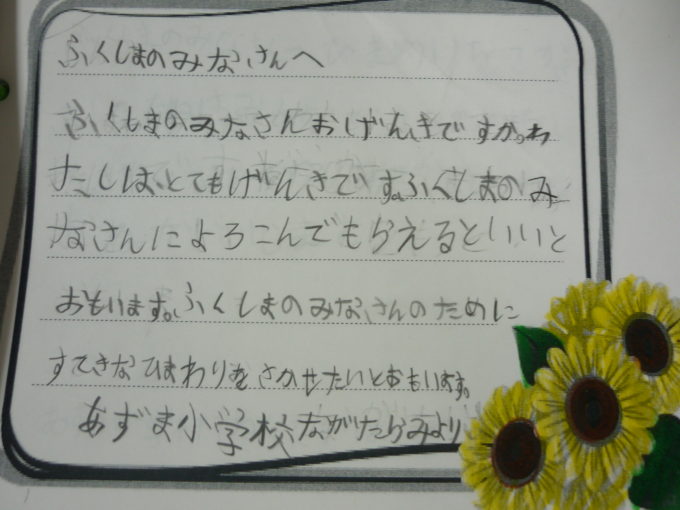 ふくしまのみなさんへ
ふくしまのみなさんおげんきですか。わ
たしは、とてもげんきです。ふくしまのみ
なさんによろこんでもらえるといいと
おもいます。ふくしまのみなさんのために
すてきなひまわりをさかせたいとおもいます。
あずま小学校ながたらみより